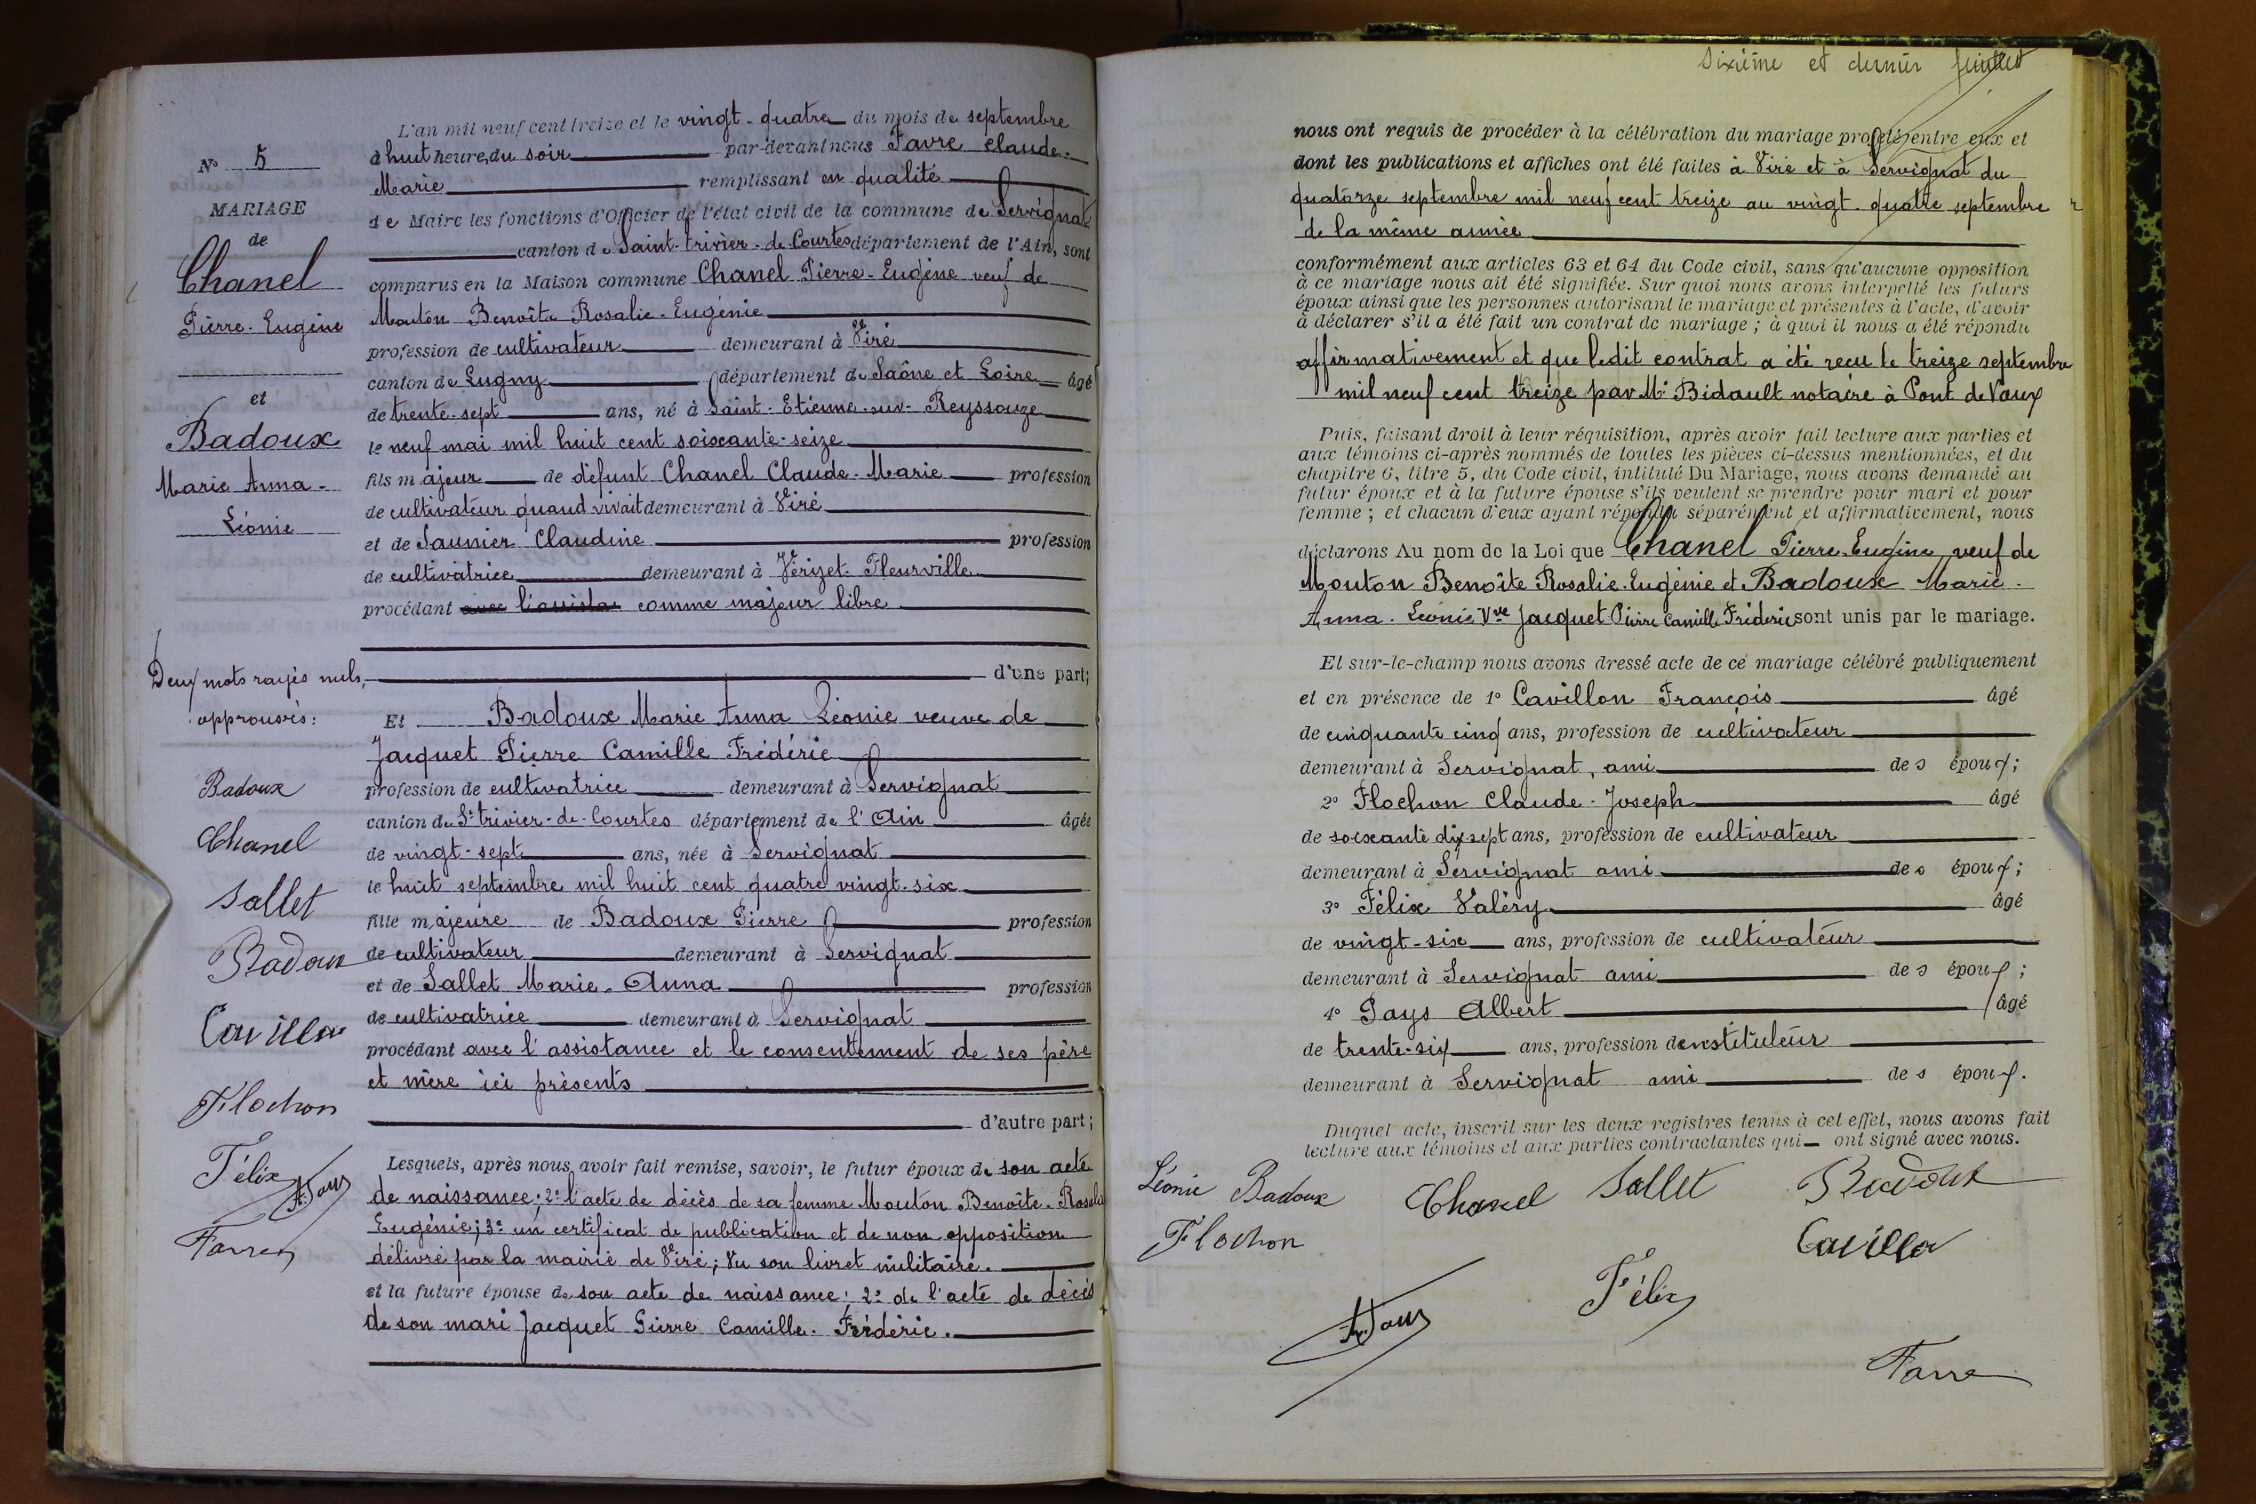 N° 5
MARIAGE
de
Chanel
Pierre-Eugène
et
Badoux
Marie Anna-
Léonie
Deux mots rayés nuls,
approuvés:
Badoux
Chanel
Sallet
Badoux
Cavillon
Flochon
Félix
A. Pays
Favre
L'an mil neuf cent treize et le vingt-quatre du mois de septembre
à huit heures du soir par-devant nous Favre Claude-
Marie remplissant en qualité
de Maire les fonctions d'Officier de l'état civil de la commune de Servignat
canton de Saint-trivier-de-Courtes département de l'Ain, sont
comparus en la Maison commune Chanel Pierre-Eugène veuf de
Mouton Benoîte Rosalie-Eugénie
profession de cultivateur demeurant à Viré
canton de Lugny département de Saône et Loire âgé
de trente-sept ans, né à Saint-Etienne-sur-Reyssouze
le neuf mai mil huit cent soixante-seize
fils majeur de défunt Chanel Claude-Marie profession
de cultivateur quand vivait demeurant à Viré
et de Saunier Claudine profession
de cultivatrice demeurant à Vérizet-Fleurville
procédant avec l'assista comme majeur libre
d'une part;
Et Badoux Marie Anna Léonie veuve de
Jacquet Pierre Camille Frédéric
profession de cultivatrice demeurant à Servignat
canton de St trivier-de-Courtes département de l'Ain âgée
de vingt-sept ans, née à Servignat
le huit septembre mil huit cent quatre vingt-six
fille majeure de Badoux Pierre profession
de cultivateur demeurant à Servignat
et de Sallet Marie-Anna profession
de cultivatrice demeurant à Servignat
procédant avec l'assistance et le consentement de ses père
et mère ici présents
d'autre part;
Lesquels, après nous avoir fait remise, savoir, le futur époux de son acte
de naissance; 2° l'acte de décès de sa femme Mouton Benoîte-Rosalie
Eugénie; 3° un certificat de publication et de non opposition
délivré par la mairie de Viré; Vu son livret militaire.
et la future épouse de son acte de naissance; 2° de l'acte de décès
de son mari Jacquet Pierre Camille-Frédéric.
Sixième et dernier feuillet
nous ont requis de procéder à la célébration du mariage projeté entre eux et
dont les publications et affiches ont été faites à Viré et à Servignat du
quatorze septembre mil neuf cent treize au vingt-quatre septembre
de la même année
conformément aux articles 63 et 64 du Code civil, sans qu'aucune opposition
à ce mariage nous ait été signifiée. Sur quoi nous avons interpellé les futurs
époux ainsi que les personnes autorisant le mariage et présentes à l'acte, d'avoir
à déclarer s'il a été fait un contrat de mariage; à quoi il nous a été répondu
affirmativement et que ledit contrat a été reçu le treize septembre
mil neuf cent treize par Me Bidault notaire à Pont de Vaux
Puis, faisant droit à leur réquisition, après avoir fait lecture aux parties et
aux témoins ci-après nommés de toutes les pièces ci-dessus mentionnées, et du
chapitre 6, titre 5, du Code civil, intitulé Du Mariage, nous avons demandé au
futur époux et à la future épouse s'ils veulent se prendre pour mari et pour
femme; et chacun d'eux ayant répondu séparément et affirmativement, nous
déclarons Au nom de la Loi que Chanel Pierre-Eugène, veuf de
Mouton Benoîte Rosalie-Eugénie et Badoux Marie-
Anna-Léonie Vve Jacquet Pierre Camille Frédéric sont unis par le mariage.
Et sur-le-champ nous avons dressé acte de ce mariage célébré publiquement
et en présence de 1° Cavillon François âgé
de cinquante cinq ans, profession de cultivateur
demeurant à Servignat, ami des époux;
2° Flochon Claude-Joseph âgé
de soixante dix sept ans, profession de cultivateur
demeurant à Servignat ami des époux;
3° Félix Valéry âgé
de vingt-six ans, profession de cultivateur
demeurant à Servignat ami des époux;
4° Pays Albert âgé
de trente-six ans, profession d'instituteur
demeurant à Servignat ami des époux.
Duquel acte, inscrit sur les deux registres tenus à cet effet, nous avons fait
lecture aux témoins et aux parties contractantes qui ont signé avec nous.
Léonie Badoux Chanel Sallet Badoux
Flochon Cavillon
A. Pays Félix
Favre